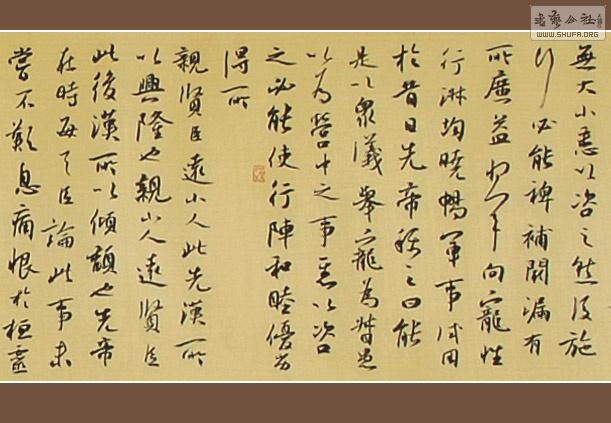 書藝公社
WWW.SHUFA.ORG
無大小悉以咨之然後施
行必能裨補闕漏有
所廣益將軍向寵性
行淑均曉暢軍事試用
於昔日先帝稱之曰能
是以衆議舉寵為督愚
以為營中之事悉以咨
之必能使行陣和睦優劣
得所
親賢臣遠小人此先漢所
以興隆也親小人遠賢臣
此後漢所以傾頹也先帝
在時每與臣論此事未
嘗不歎息痛恨於桓靈